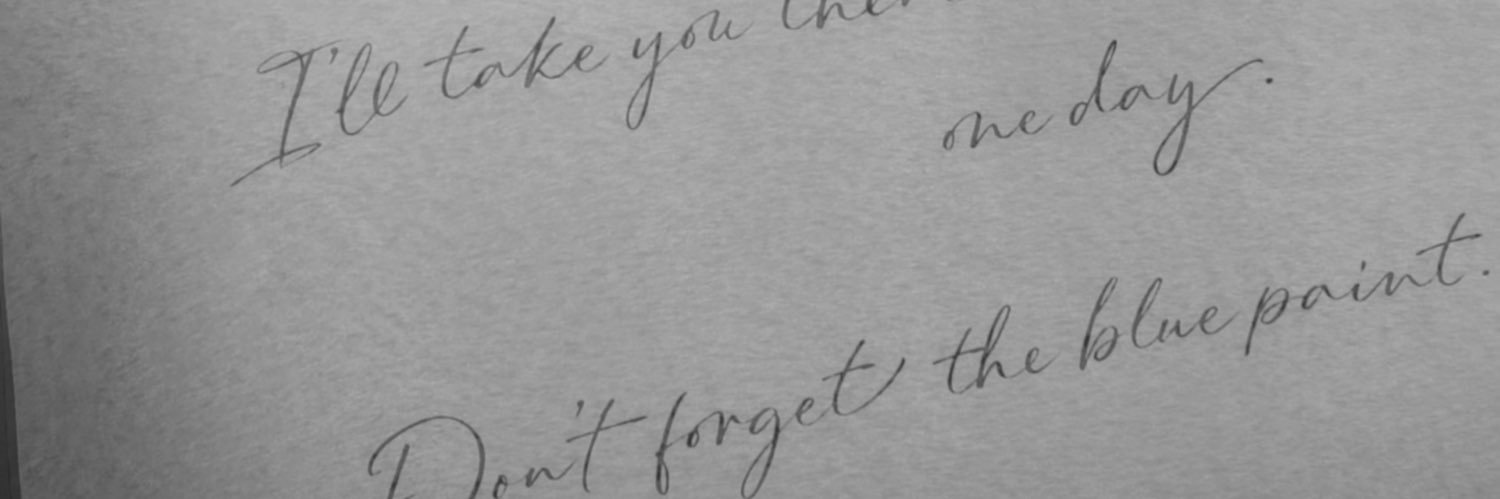 I'll take you
one day.
Don't forget the blue paint.